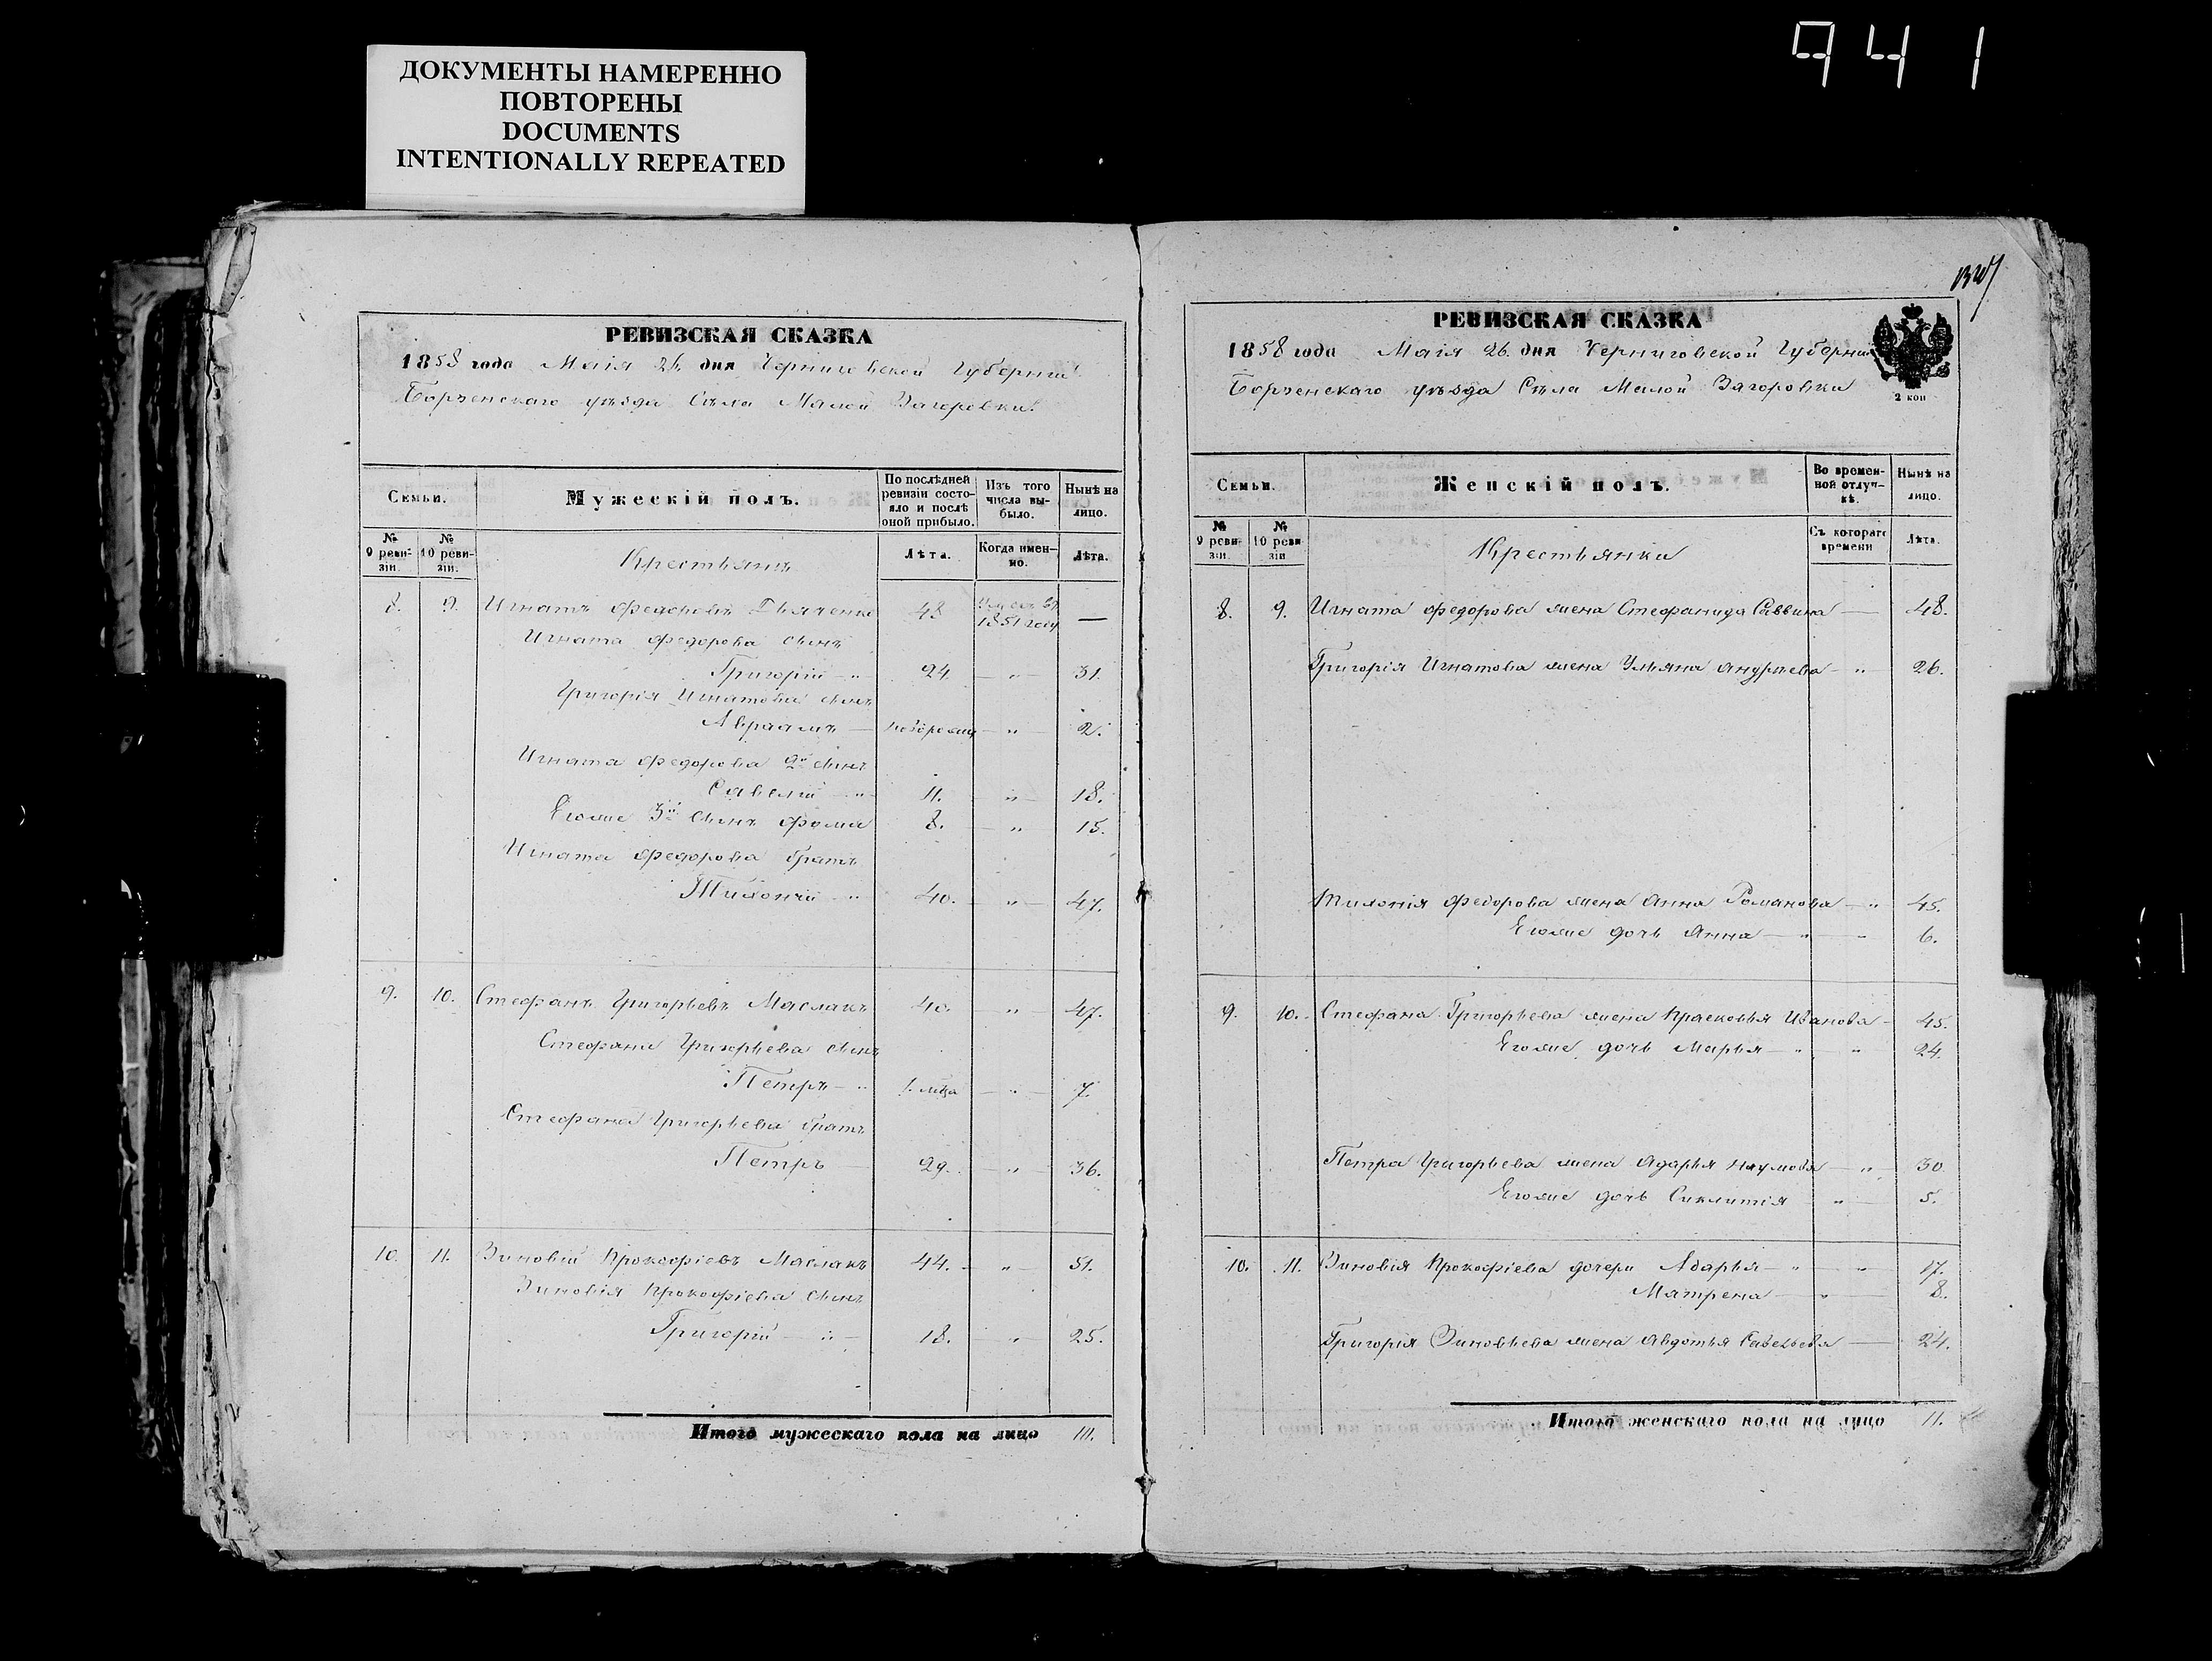 ДОКУМЕНТЫ НАМЕРЕННО
ПОВТОРЕНЫ
DOCUMENTS
INTENTIONALLY REPEATED
941
РЕВИЗСКАЯ СКАЗКА
1858 года Маія 26 дня Черниговской Губерніи
Борзенскаго уѣзда Села Малой Загоровки.
Семьи.
Мужескій полъ.
По послѣдней ревизіи состояло и послѣ оной прибыло.
Изъ того числа выбыло.
Нынѣ на лицо.
№ 9 ревизіи.
№ 10 ревизіи.
Крестьянъ
Лѣта.
Когда именно.
Лѣта.
8. 9. Игнатъ Федоровъ Дьяченко 48 1851 году —
Игната Федорова сынъ
Григорій " 24 " 31.
Григорія Игнатова сынъ
Авраамъ — " 2.
Игната Федорова 2й сынъ
Савелій " 11. " 18.
Егоже 3й сынъ Фома 8. " 15.
Игната Федорова братъ
40. " 47.
9. 10. Стефанъ Григорьевъ Маслакъ 40. " 47.
Стефана Григорьева сынъ
Петръ — " 1 мца " 7.
Стефана Григорьева братъ
Петръ — 29. " 36.
10. 11. Зиновій Прокофіевъ Маслакъ 44. " 51.
Зиновія Прокофіева сынъ
Григорій — " — 18. " 25.
Итого мужескаго пола на лицо 10.
РЕВИЗСКАЯ СКАЗКА
1858 года Маія 26. дня Черниговской Губерніи
Борзенскаго уѣзда Села Малой Загоровки
2 коп
Семьи.
Женскій полъ.
Во временной отлучкѣ.
Нынѣ на лицо.
№ 9 ревизіи.
№ 10 ревизіи
Крестьянки
Съ котораго времени
Лѣта.
8. 9. Игната Федорова жена Стефанида Саввина — 48.
Григорія Игнатова жена Ульяна — " — 26.
Федорова жена Анна Романова — " 45.
Егоже дочь Анна — " — " 6.
9. 10. Стефана Григорьева жена Прасковья Иванова — 45.
Егоже дочь Марья — " — " 24.
Петра Григорьева жена Адарья Наумова — " — 30
Егоже дочь Сиклитія " 5.
10. 11. Зиновія Прокофіева дочери Адарья — " — " 17.
Матрена — " — 8.
Григорія Зиновьева жена Авдотья Савельева — 24.
Итого женскаго пола на лицо 11.